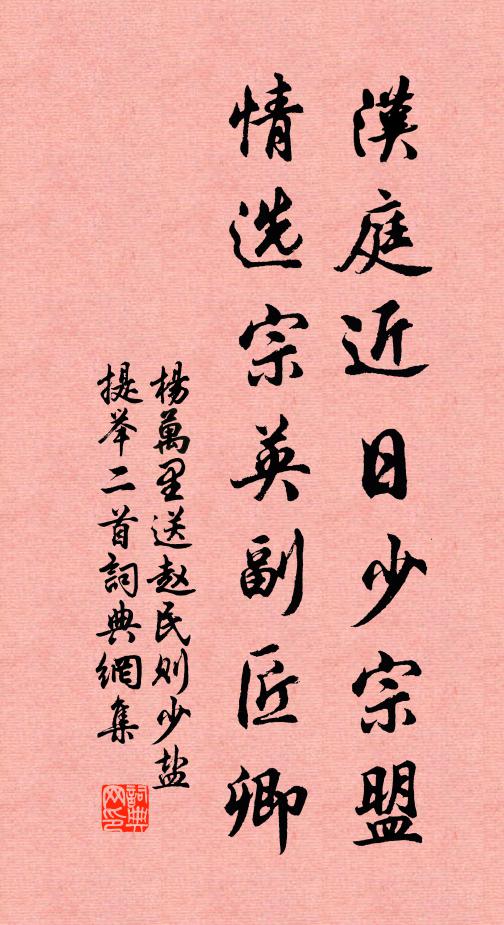 漢庭近日少宗盟
情选宗英副匠卿
楊萬里送赵民则少盐
提举二首詞典網集
詞典网印